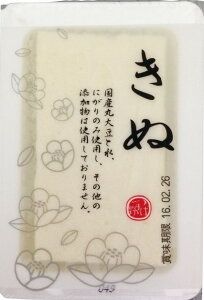 きぬ
国産丸大豆と水、
にがりのみ使用し、その他の
添加物は使用しておりません。
賞味期限 16.02.26